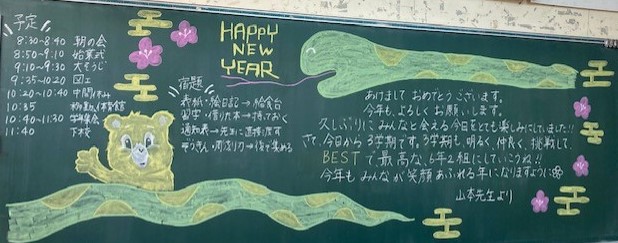 予定
8:30~8:40 朝の会
8:50~9:10 始業式
9:10~9:30 大そうじ
9:35~10:20 図工
10:20~10:40 中間休み
10:35 体育館
10:40~11:30 学年集会
11:40 下校
宿題
表紙・絵日記→給食台
図書・借りた本→持っておく
通知表→先生に直接渡す
ぞうきん・→後で集める
HAPPY
NEW
YEAR
あけまして おめでとうございます。
今年も、よろしくお願いします。
久しぶりにみんなと会える今日をとても楽しみにしていました!!
さて、今日から3学期です。3学期も、明るく、仲良く、挑戦して、
BESTで最高な、6年2組にしていこうね!!
今年もみんなが笑顔あふれる年になりますように
山本先生より